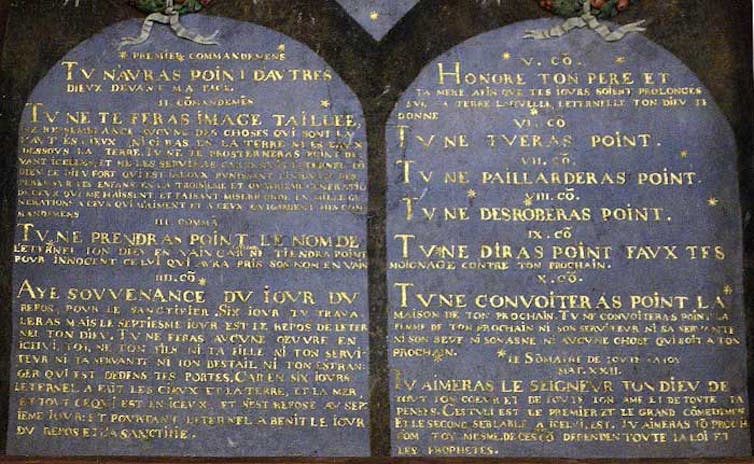 PREMIER COMMANDEMENS
TV NAVRAS POINT DAVTRES
DIEVX DEVANT MA FACE.
II. COMANDEMĒS
TV NE TE FERAS IMAGE TAILLEE,
NE RESSEMBLANCE AVCVNE DES CHOSES QVI SONT LA
HAVT ES CIEVX NI CI BAS EN LA TERRE NI ES EAVX
DESSOVS LA TERRE TV NE TE PROSTERNERAS POINT DE
VANT ICELLES, ET NE LES SERVIRAS
DIEV LE DIEV FORT QVI EST IALOVX PVNISSANT
PERES SVR LES ENFANS EN LA TROISIEME ET QVATRIEME GENERATIO
DE CEVX QVI ME HAISSENT, ET FAISANT MISERICORDE EN MILLE GE
NERATIONS A CEVX QVI MAIMENT ET A CEVX QVI GARDENT MES COM
MANDEMENS
III. COMMĀ
TV NE PRENDRAS POINT LE NOM DE
LETERNEL TON DIEV EN VAIN CAR NE TIENDRA POINT
POVR INNOCENT CELVI QVI AVRA PRIS SON NOM EN VAIN
IIII. CŌ
AYE SOVVENANCE DV IOVR DV
REPOS, POVR LE SANCTIFIER. SIX IOVR TV TRAVA
LERAS MAIS LE SEPTIESME IOVR EST LE REPOS DE LETER
NEL TON DIEV. TV NE FERAS AVCVNE OEVVRE EN
ICELVI, TOI, NE TON FILS NI TA FILLE NI TON SERVI
TEVR NI TA SERVANTE NI TON BESTAIL NI TON ESTRAN
GER QVI EST DEDENS TES PORTES. CAR EN SIX IOVRS
LETERNEL A FAIT LES CIEVX ET LA TERRE, ET LA MER,
ET TOVT CE QVI EST EN ICEVX ET SEST REPOSE AV SEP
TIEME IOVR: ET POVRTANT LETERNEL A BENIT LE IOVR
DV REPOS ET LA SANCTIFIE.
V. CŌ.
HONORE TON PERE ET
TA MERE AFIN QVE TES IOVRS SOIENT PROLONGES
SVR LA TERRE LAQVELLE LETERNEL TON DIEV TE
DONNE
VI. CŌ
TV NE TVERAS POINT.
VII. CŌ
TV NE PAILLARDERAS POINT.
VIII. CŌ
TV NE DESROBERAS POINT.
IX. CŌ
TV NE DIRAS POINT FAVX TES
MOIGNAGE CONTRE TON PROCHAIN.
X. CŌ
TV NE CONVOITERAS POINT LA
MAISON DE TON PROCHAIN. TV NE CONVOITERAS POINT LA
FEMME DE TON PROCHAIN NI SON SERVITEVR NI SA SERVANTE
NI SON BEVF NI SON ASNE NI AVCVNE CHOSE QVI SOIT A TON
PROCHAIN.
LE SOMAIRE DE TOVTE LA LOY
MAT. XXII.
TV AIMERAS LE SEIGNEVR TON DIEV DE
TOVT TON COEVR ET DE TOVTE TON AME ET DE TOVTE TA
PENSEE. CESTVI EST LE PREMIER ET LE GRAND CŌMĒDEMĒT
ET LE SECOND SEBLABLE A ICELVI, EST. TV AIMERAS TŌ PROCH
COM TOY MESME. DE CES DEPENDEN TOVTE LA LOI ET
LES PROPHETES.